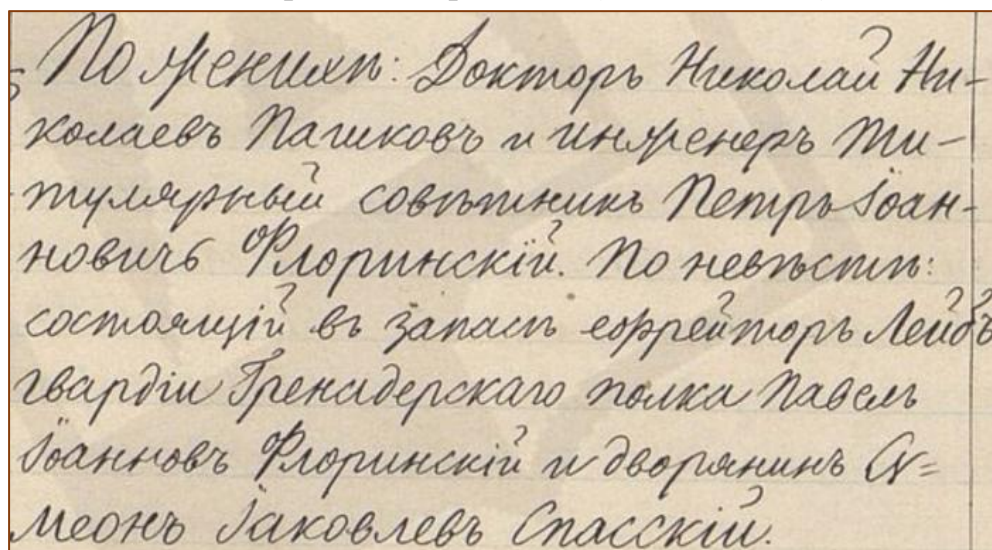 По женихѣ: Докторъ Николай Ни-
колаевъ Пашковъ и инженеръ Ти-
тулярный совѣтникъ Петръ Іоан-
новичъ Флоринскій. По невѣстѣ:
состоящій въ запасѣ ефрейторъ Лейбъ
гвардіи Гренадерскаго полка Павелъ
Іоанновъ Флоринскій и дворянинъ Сѵ=
меонъ Іаковлевъ Спасскій.